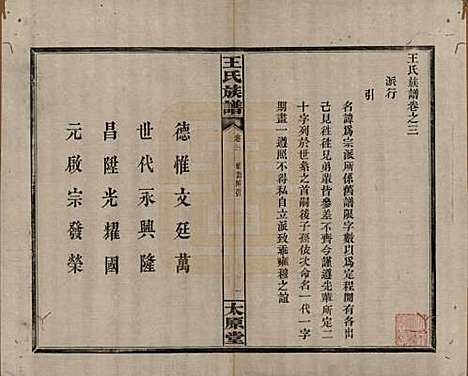 王氏族譜卷之三
派行
引
名諱爲宗派所係舊譜限字數以爲定程間有各出
己見往徃兄弟輩皆參差不齊今謹遵先輩所定二
十字列於世系之首嗣後子孫依次命名一代一字
期畫一遵照不得私自立派致乖雍穆之誼
王氏族譜
卷三
太原堂
德惟文廷萬
世代永興隆
昌陞光耀國
元啟宗發榮